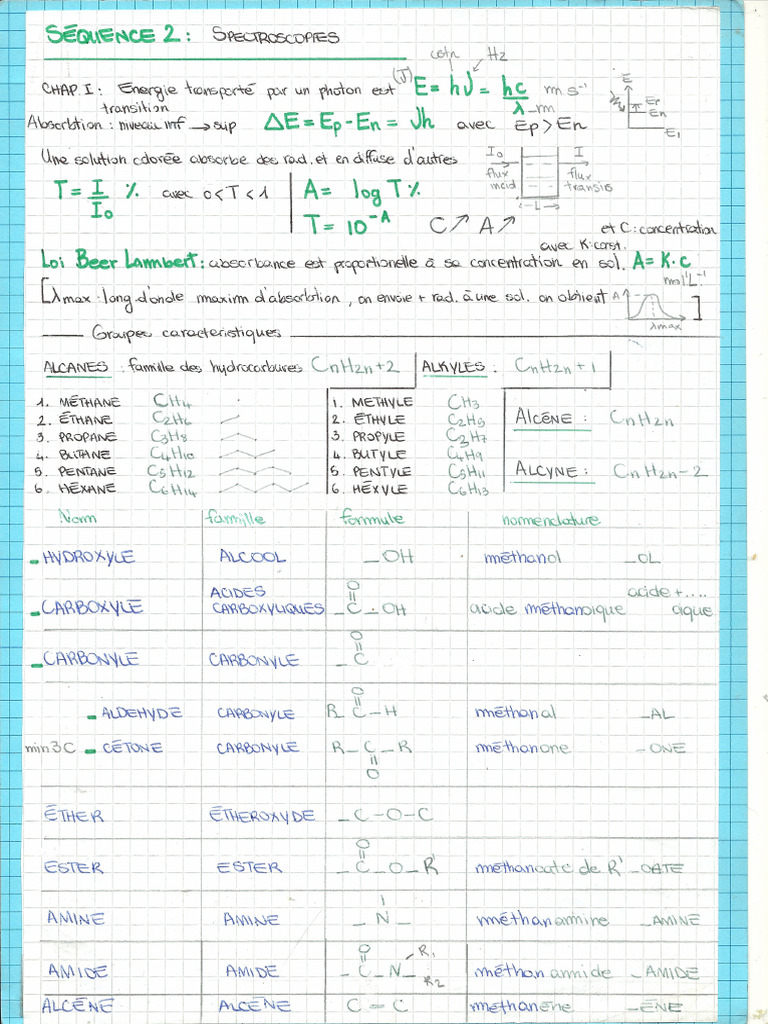 SÉQUENCE 2 : SPECTROSCOPIES
Hz
CHAP. I : Energie transporté par un photon est (J) E = hν = hc/λ m.s⁻¹ m
transition
Absorbtion : niveau inf → sup ΔE = Ep - En = νh avec Ep > En
E
Ep
En
E1
Une solution colorée absorbe des rad. et en diffuse d'autres
I0 I
flux incid flux transis
L
T = I/I0 % avec 0 < T < 1
A = log T %
T = 10^-A C↗ A↗
et C : concentration
avec K : const.
Loi Beer Lammbert : absorbance est proportionelle à sa concentration en sol. A = K·c
mol L⁻¹
[λmax : long d'onde maxim d'absorbtion, on envoie + rad. à une sol. on obtient A λmax ]
Groupes caracteristiques
ALCANES : famille des hydrocarbures CnH2n+2 ALKYLES : CnH2n+1
1. MÉTHANE CH4 1. METHYLE CH3
2. ÉTHANE C2H6 2. ÉTHYLE C2H5
3. PROPANE C3H8 3. PROPYLE C3H7
4. BUTANE C4H10 4. BUTYLE C4H9
5. PENTANE C5H12 5. PENTYLE C5H11
6. HÉXANE C6H14 6. HÉXYLE C6H13
Alcéne : CnH2n
ALCYNE : CnH2n-2
Nom famille formule nomenclature
HYDROXYLE ALCOOL _OH méthanol _OL
CARBOXYLE ACIDES CARBOXYLIQUES O=C-OH acide méthanoique acide +.... oique
CARBONYLE CARBONYLE O=C
ALDEHYDE CARBONYLE R C(=O)-H méthanal _AL
min 3C CÉTONE CARBONYLE R_C(=O)_R méthanone -ONE
ÉTHER ÉTHEROXYDE _C-O-C
ESTER ESTER _C(=O)_O_R' méthanoate de R' _OATE
AMINE AMINE _N_ méthanamine _AMINE
AMIDE AMIDE -C(=O)_N_ R1 R2 méthanamide _AMIDE
ALCÉNE ALCÉNE C=C methanéne _ÉNE